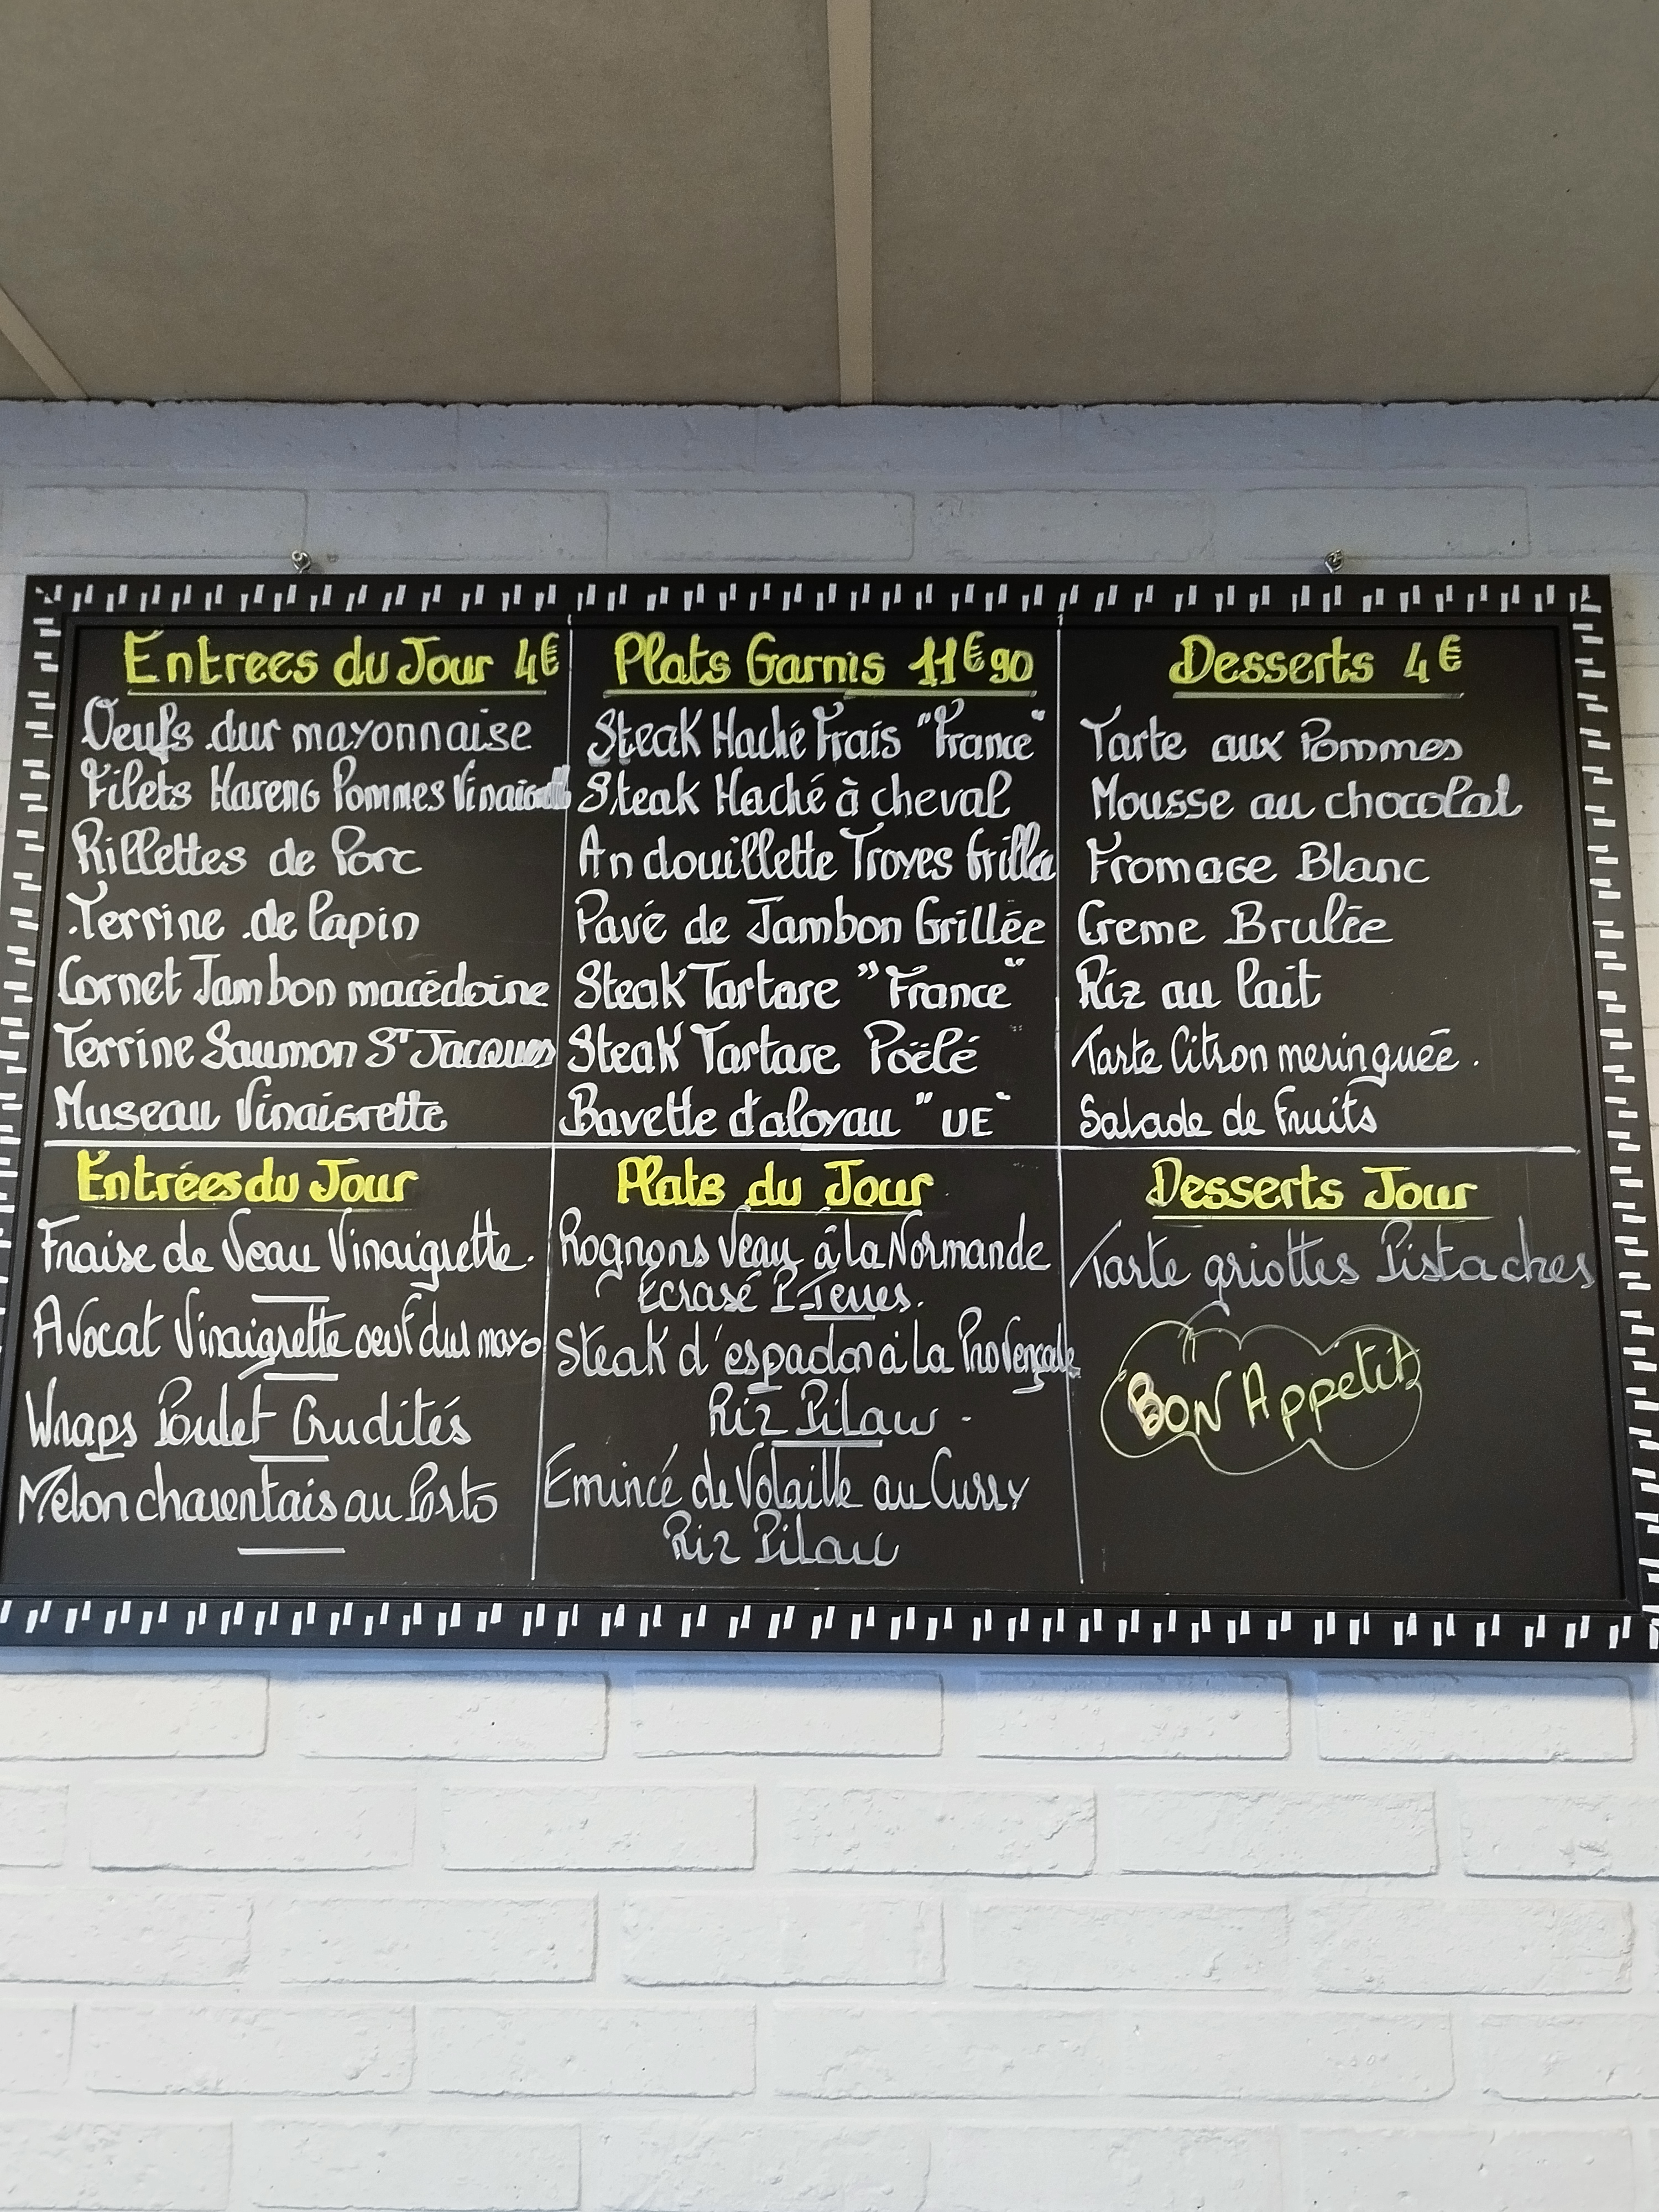 Entrees du Jour 4€
Oeufs dur mayonnaise
Filets Hareng Pommes
Rillettes de Porc
Terrine de lapin
Cornet Jambon macédoine
Terrine Saumon St Jacques
Museau Vinaigrette
Plats Garnis 11€90
Steak Haché Frais "France"
Steak Haché à cheval
Andouillette Troyes
Pavé de Jambon Grillée
Steak Tartare "France"
Steak Tartare Poëlé
Bavette d'aloyau "UE"
Desserts 4€
Tarte aux Pommes
Mousse au chocolat
Fromage Blanc
Creme Brulée
Riz au lait
Tarte Citron meringuée.
Salade de Fruits
Entrées du Jour
Fraise de Veau Vinaigrette.
Avocat Vinaigrette oeuf dur mayo
Wraps Poulet Crudités
Melon charentais au Porto
Plats du Jour
Rognons Veau à la Normande
Ecrasé P-Terres.
Steak d'espadon à la Provençale
Riz Pilaw -
Emincé de Volaille au Curry
Riz Pilaw
Desserts Jour
Tarte griottes Pistaches
Bon Appetit